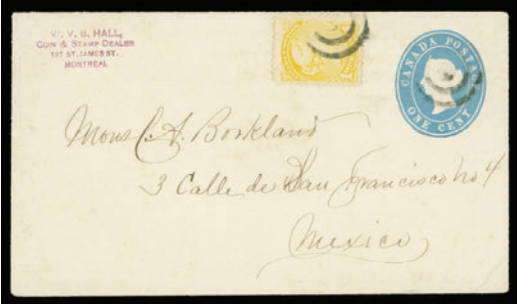 W. V. B. HALL,
COIN & STAMP DEALER
ST. JAMES ST.
MONTREAL
CANADA POSTAGE
ONE CENT
Mons C. A.
3 Calle de San Francisco no 4
Mexico